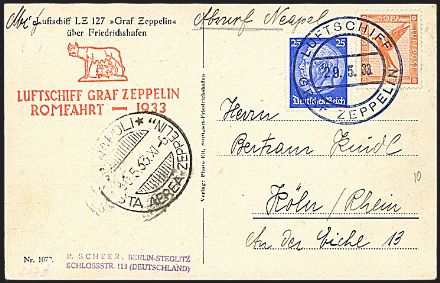 Mit Luftschiff LZ 127 »Graf Zeppelin«
über Friedrichshafen
Abwurf Neapel
LUFTSCHIFF GRAF ZEPPELIN
ROMFAHRT — 1933
25 25
Deutsches Reich
50 Pf
LUFTPOST
LUFTSCHIFF
29.5.33
ZEPPELIN
NAPOLI
30.5.33.XI
POSTA AEREA ZEPPELIN
Herrn
Bertram Kindl
Köln / Rhein
An der Eiche 13
10
Nr. 107
R. SCHEER, BERLIN-STEGLITZ
SCHLOSSSTR. 113 (DEUTSCHLAND)